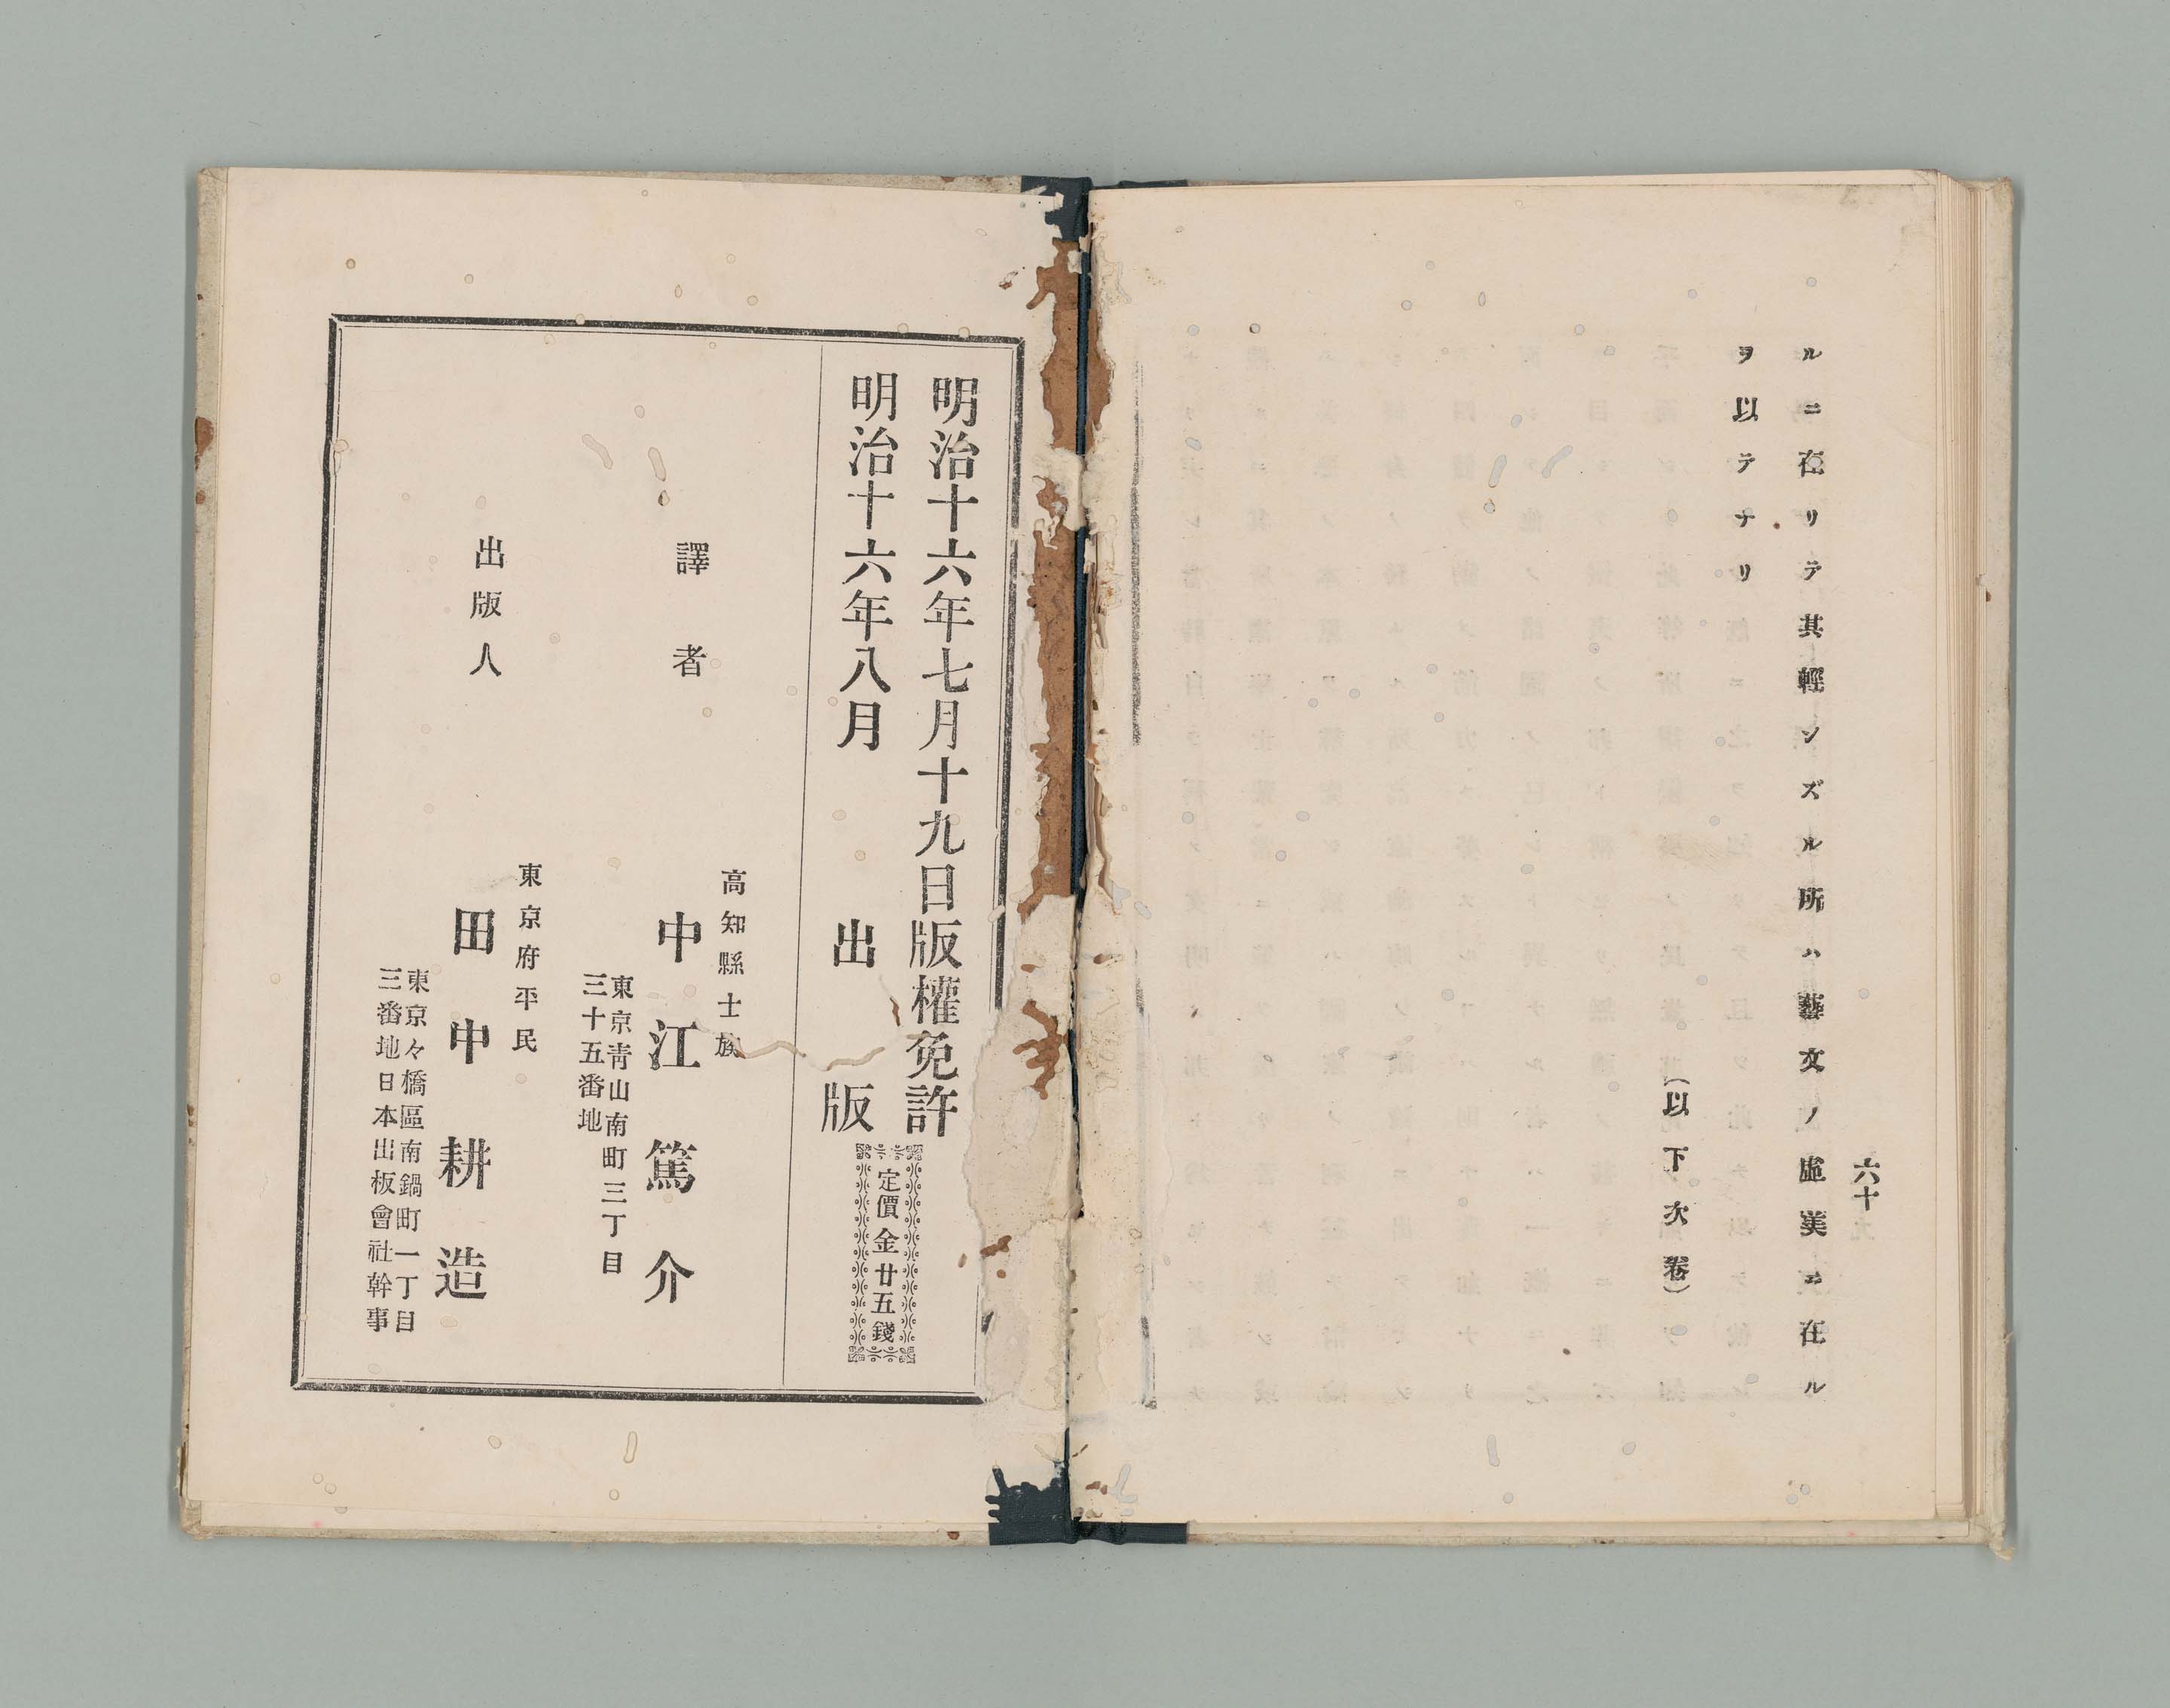 ルニ在リテ其輕ンズル所ハ藝文ノ虛美ニ在ル
ヲ以テナリ
(以下次卷)
六十九
明治十六年七月十九日版權免許
明治十六年八月 出版
定價金廿五錢
譯者
高知縣士族
中江篤介
東京靑山南町三丁目
三十五番地
出版人
東京府平民
田中耕造
東京々橋區南鍋町一丁目
三番地日本出板會社幹事